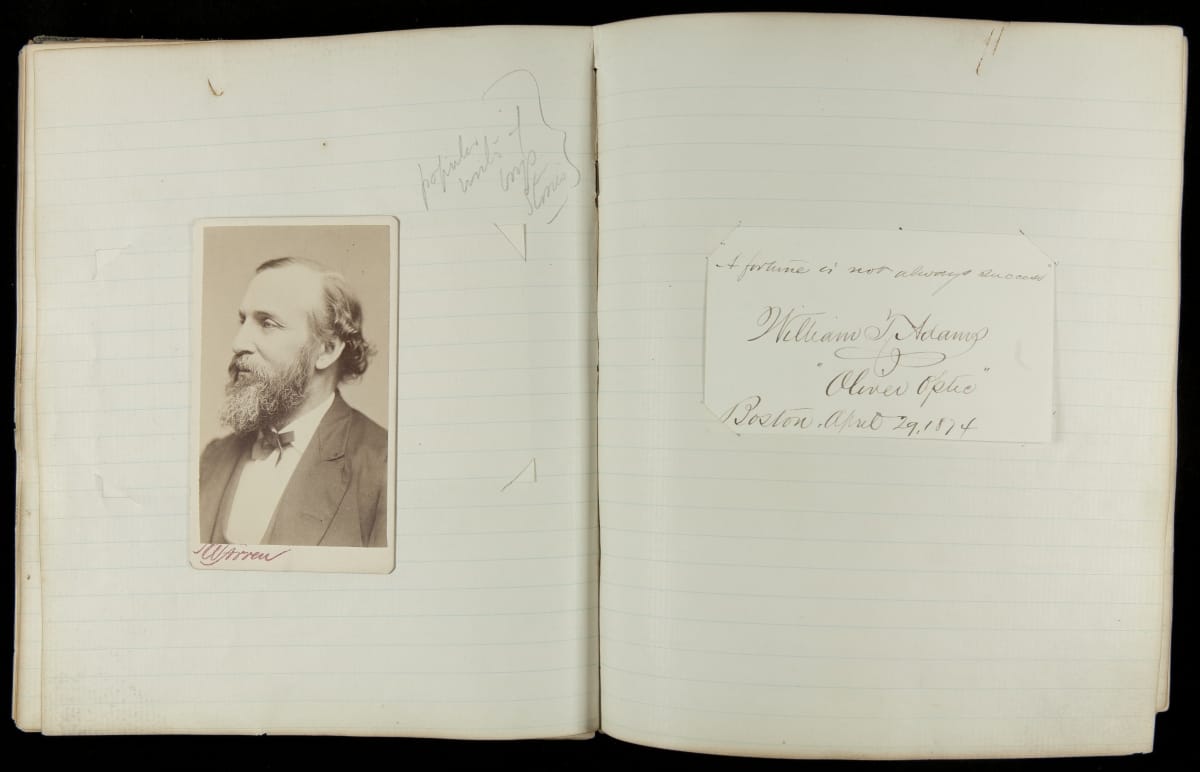 popular
writer of
boys
stories
Warren
"A fortune is not always success"
William T. Adams
"Oliver Optic"
Boston, April 29, 1874